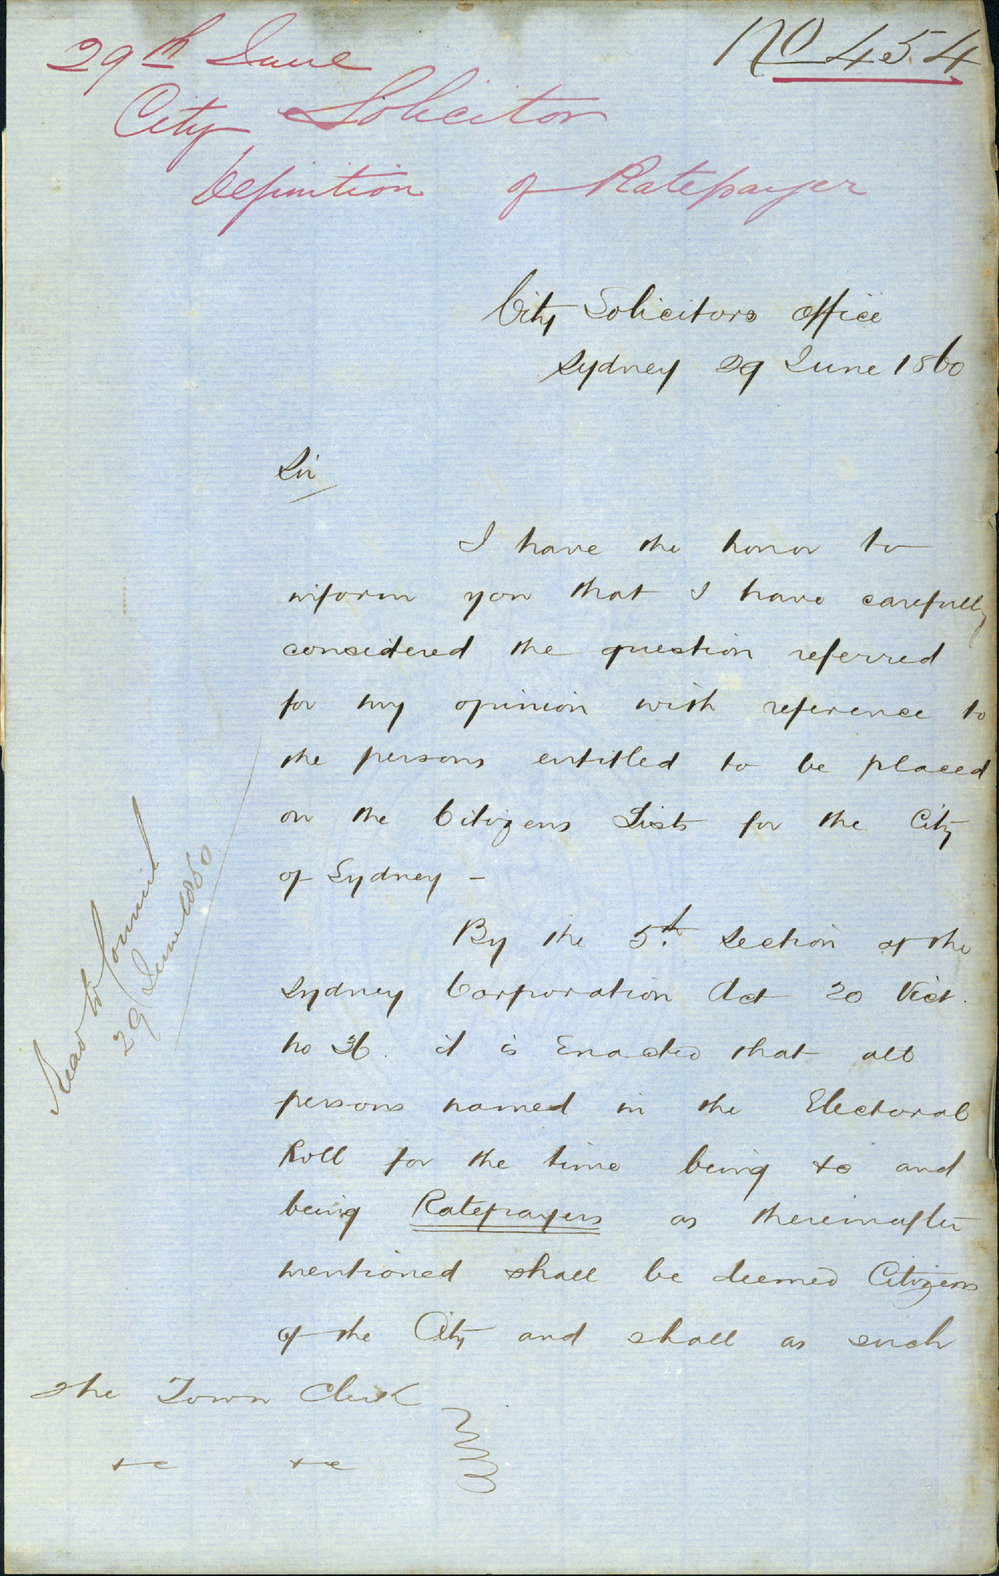 No 454
29th June
City Solicitor
Definition of Ratepayer
City Solicitors office
Sydney 29 June 1860
Sir
I have the honor to
inform you that I have carefully
considered the question referred
for my opinion with reference to
the persons entitled to be placed
on the Citizens Lists for the City
of Sydney -
By the 5th Section of the
Sydney Corporation Act 20 Vict.
No 36. it is Enacted that all
persons named in the Electoral
Roll for the time being &c and
being Ratepayers as thereinafter
mentioned shall be deemed Citizens
of the City and shall as such
The Town Clerk
&c &c
Read to Council
29 June 1860